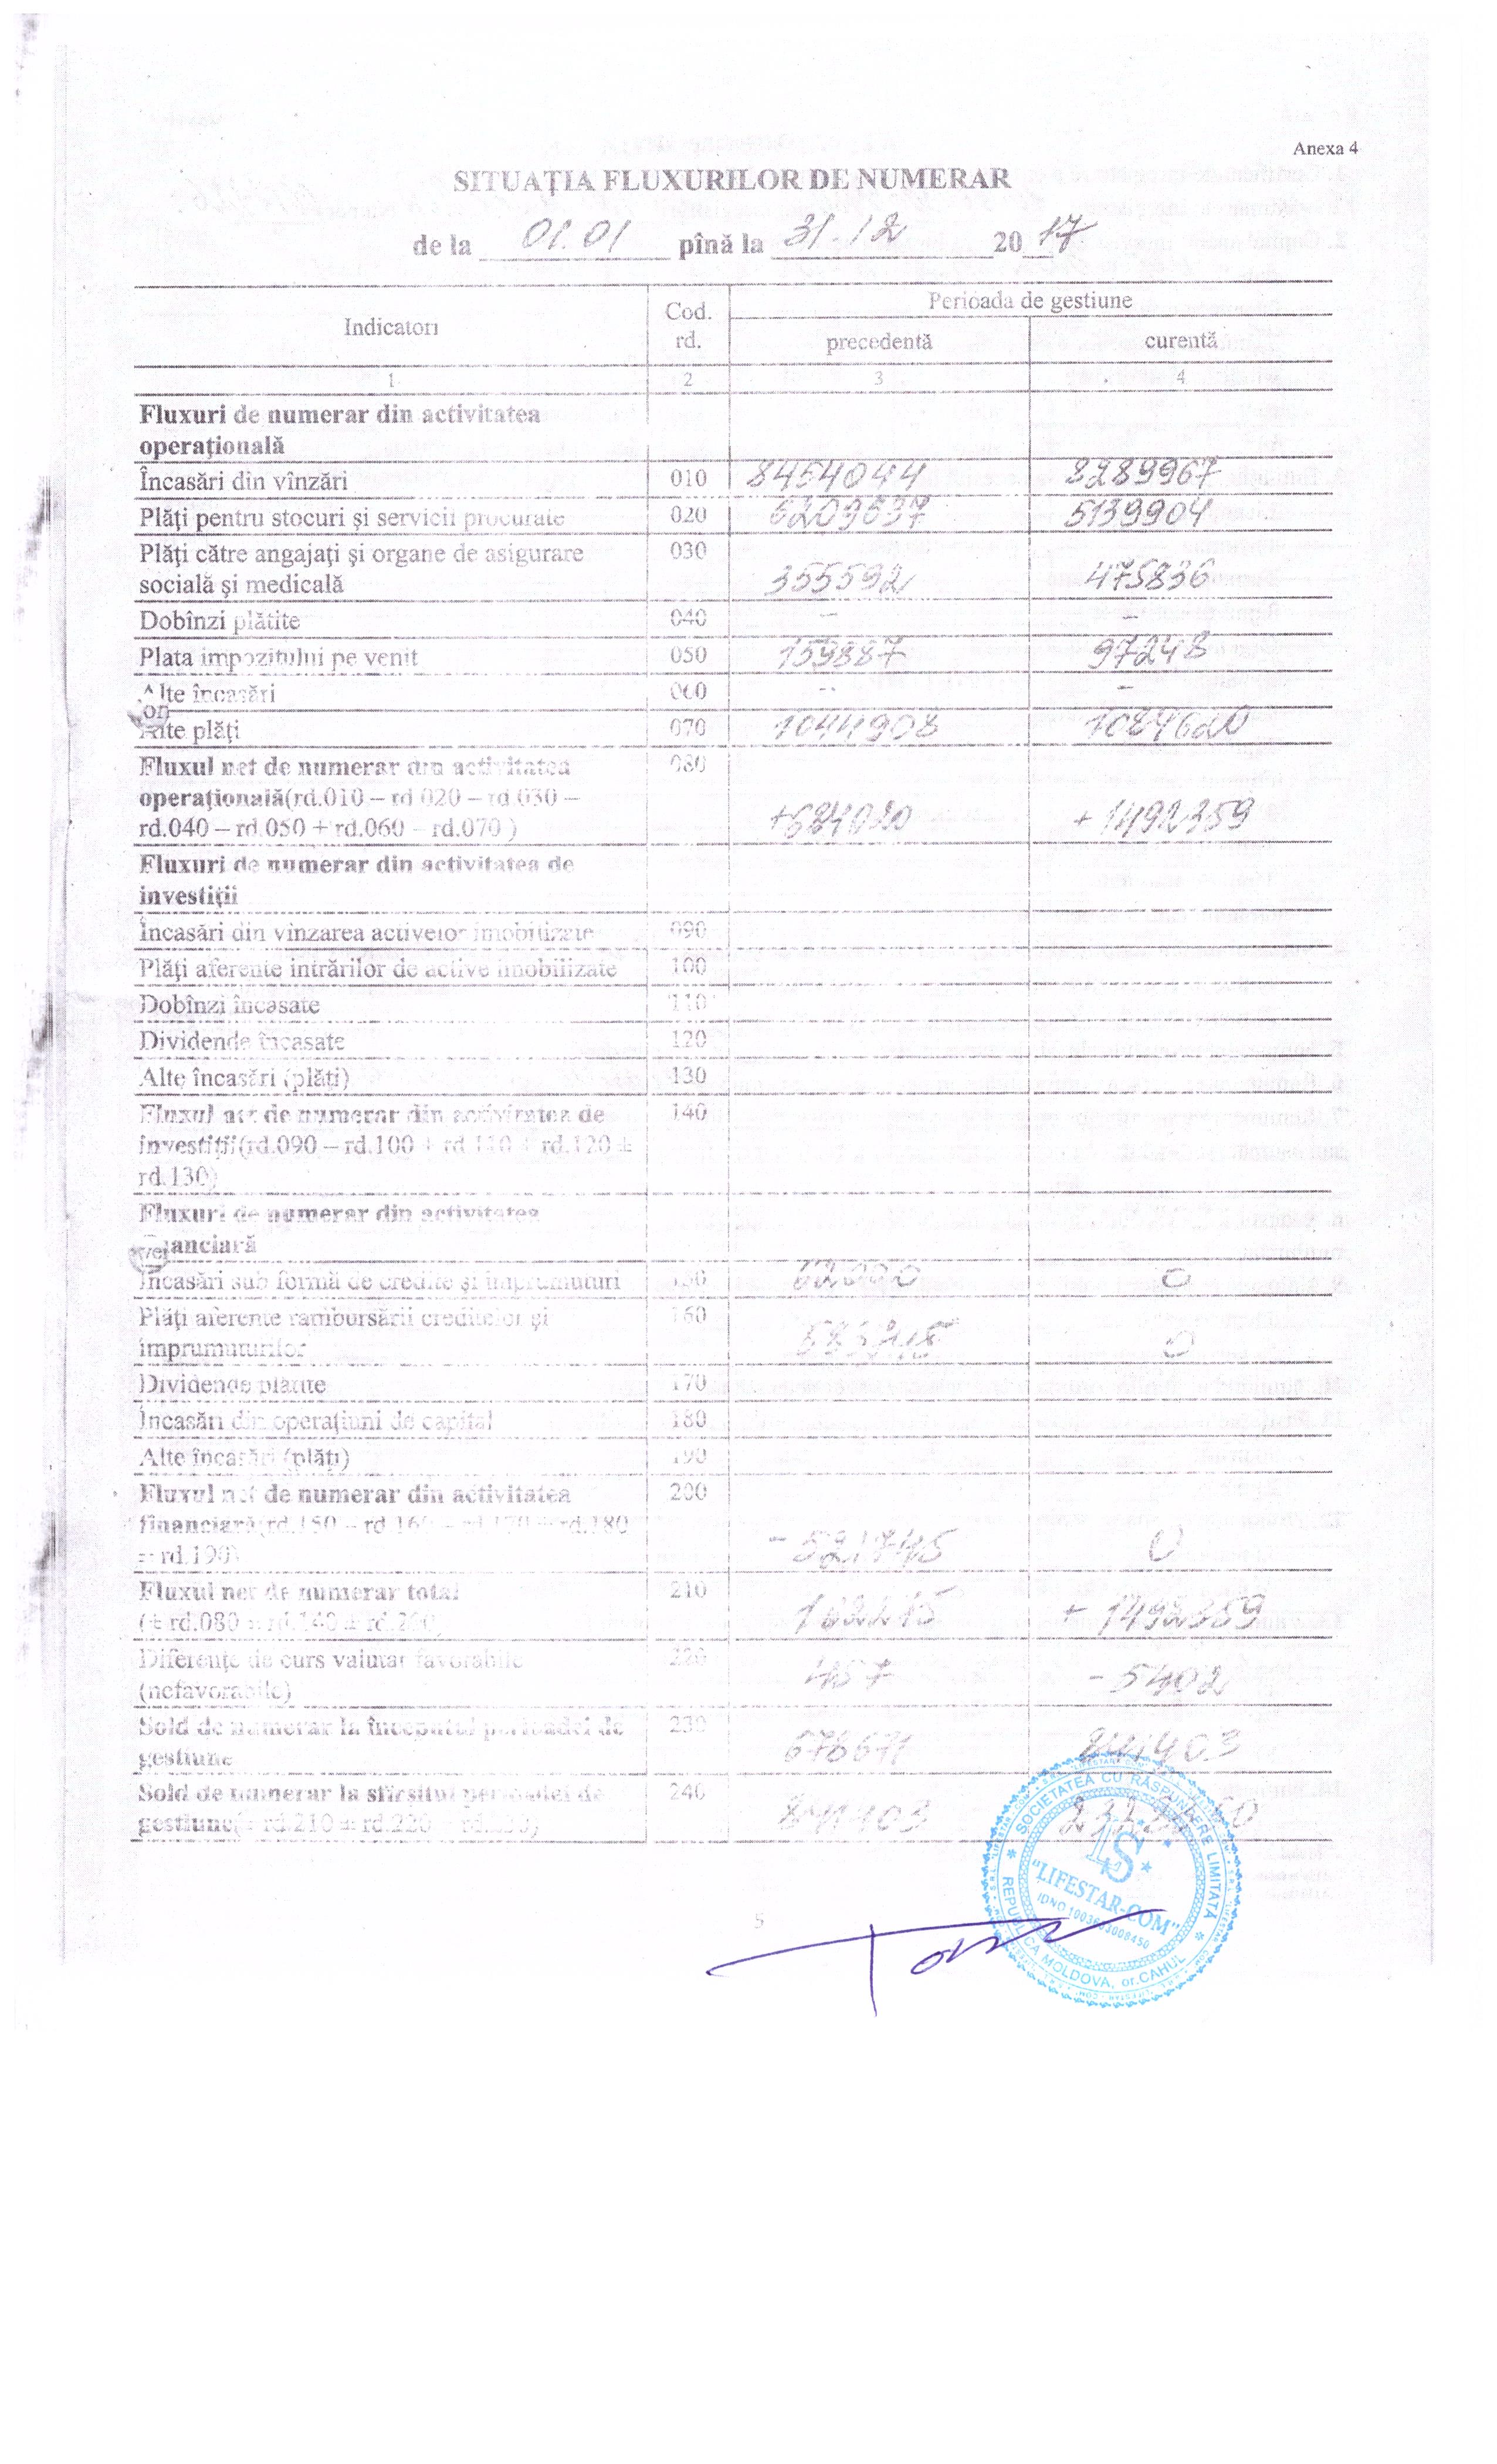 Anexa 4
SITUAŢIA FLUXURILOR DE NUMERAR
de la 01.01 pînă la 31.12 2017
Indicatori
Cod. rd.
Perioada de gestiune
precedentă
curentă
1 2 3 4
Fluxuri de numerar din activitatea
operaţională
Încasări din vînzări 010 8454044 8289967
Plăţi pentru stocuri şi servicii procurate 020 6209637 5139904
Plăţi către angajaţi şi organe de asigurare 030
socială şi medicală 355592 475836
Dobînzi plătite 040 - -
Plata impozitului pe venit 050 159887 97248
Alte încasări 060 - -
Alte plăţi 070 1044908 1084620
Fluxul net de numerar din activitatea 080
operaţională(rd.010 – rd.020 – rd.030 –
rd.040 – rd.050 + rd.060 – rd.070 ) + 1492359
Fluxuri de numerar din activitatea de
investiţii
Încasări din vînzarea activelor imobilizate 090
Plăţi aferente intrărilor de active imobilizate 100
Dobînzi încasate 110
Dividende încasate 120
Alte încasări (plăţi) 130
Fluxul net de numerar din activitatea de 140
investiţii(rd.090 – rd.100 + rd.110 + rd.120 ±
rd.130)
Fluxuri de numerar din activitatea
financiară
Încasări sub formă de credite şi împrumuturi 150 62000 0
Plăţi aferente rambursării creditelor şi 160
împrumuturilor 0
Dividende plătite 170
Încasări din operaţiuni de capital 180
Alte încasări (plăţi) 190
Fluxul net de numerar din activitatea 200
financiară(rd.150 – rd.160 – rd.170 + rd.180
± rd.190) - 521745 0
Fluxul net de numerar total 210
(± rd.080 ± rd.140 ± rd.200) + 1492359
Diferenţe de curs valutar favorabile 220
(nefavorabile) 457 - 5402
Sold de numerar la începutul perioadei de 230
gestiune 678671
Sold de numerar la sfîrşitul perioadei de 240
gestiune(± rd.210 ± rd.220 + rd.230) 841403
5
SOCIETATEA CU RĂSPUNDERE LIMITATĂ
LS
"LIFESTAR-COM"
IDNO 1003603008450
REPUBLICA MOLDOVA, or.CAHUL